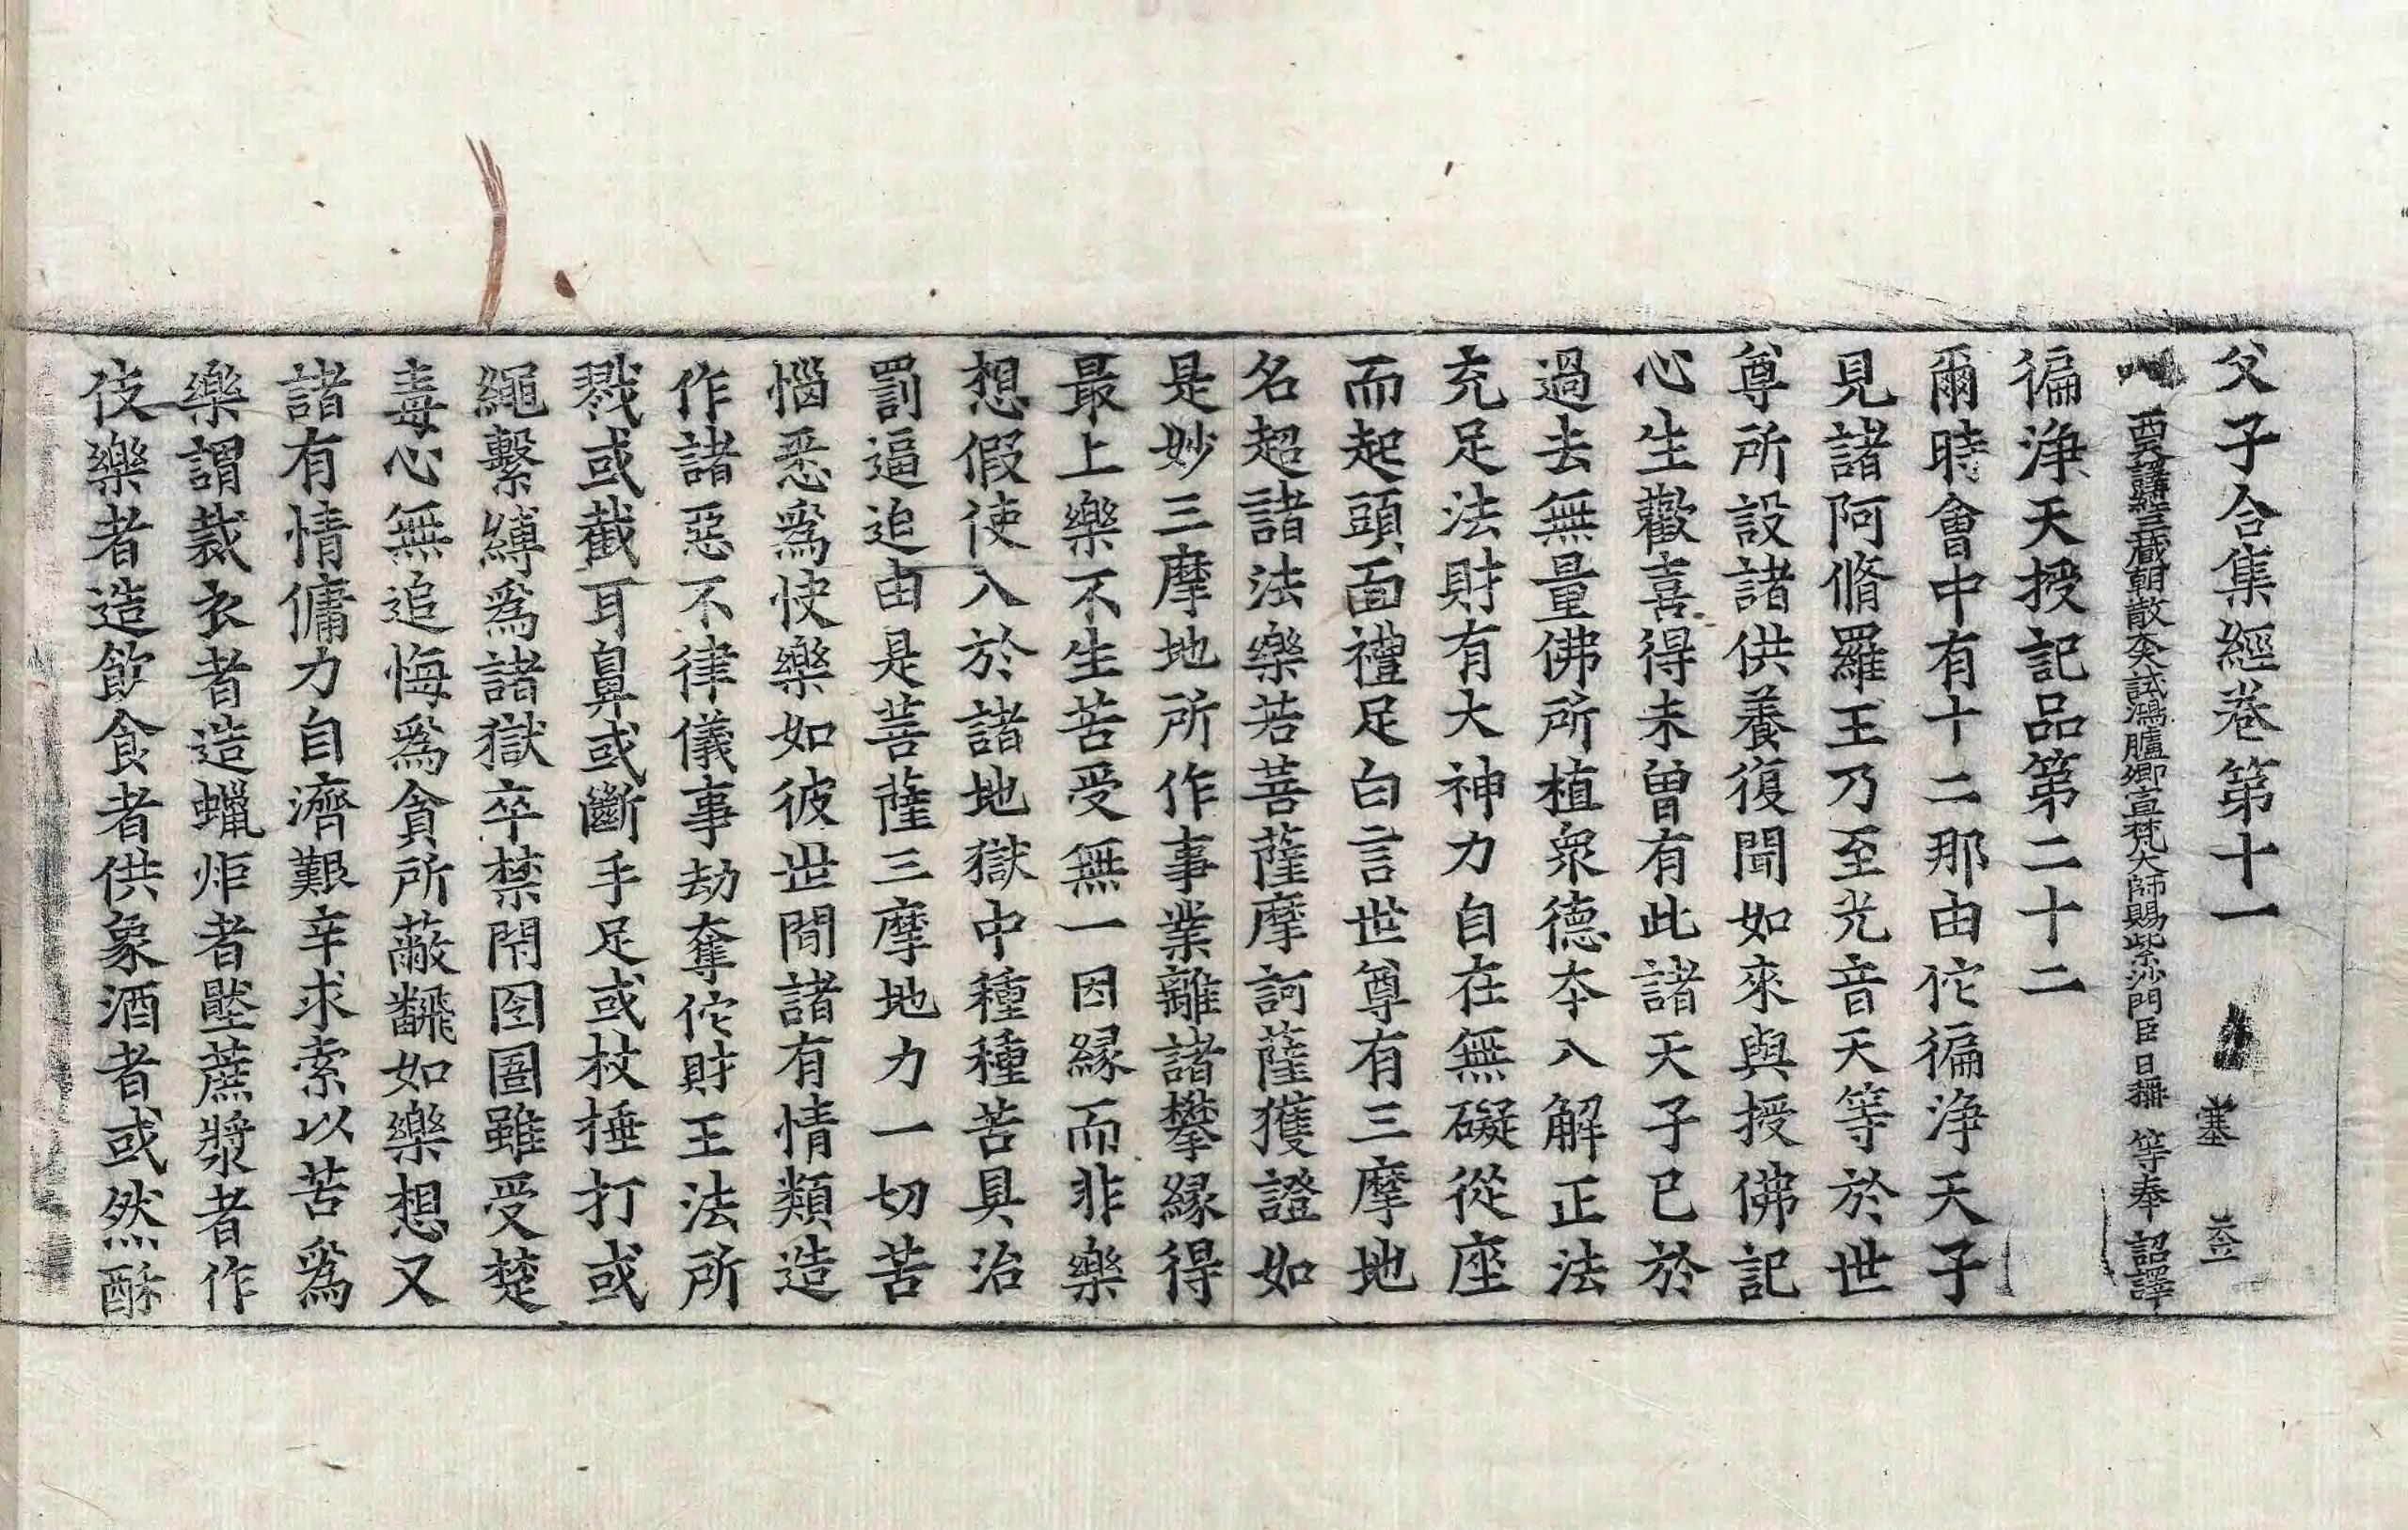 父子合集經卷第十一　塞
西天譯經三藏朝散大夫試鴻臚卿宣梵大師賜紫沙門臣日稱等奉　詔譯
徧淨天授記品第二十二
爾時會中有十二那由佗徧淨天子
見諸阿脩羅王乃至光音天等於世
尊所設諸供養復聞如來與授佛記
心生歡喜得未曾有此諸天子已於
過去無量佛所植衆德夲入解正法
充足法財有大神力自在無礙從座
而起頭面禮足白言世尊有三摩地
名超諸法樂若菩薩摩訶薩獲證如
是妙三摩地所作事業離諸攀緣得
最上樂不生苦受無一因緣而非樂
想假使入於諸地獄中種種苦具治
罰逼迫由是菩薩三摩地力一切苦
惱悉爲快樂如彼世間諸有情類造
作諸惡不律儀事劫奪佗財王法所
戮或截耳鼻或斷手足或杖捶打或
繩繫縛爲諸獄卒禁閇囹圄雖受楚
毒心無追悔爲貪所蔽飜如樂想又
諸有情傭力自濟艱辛求索以苦爲
樂謂裁衣者造蠟炬者壓蔗漿者作
伎樂者造飮食者供象酒者或然酥